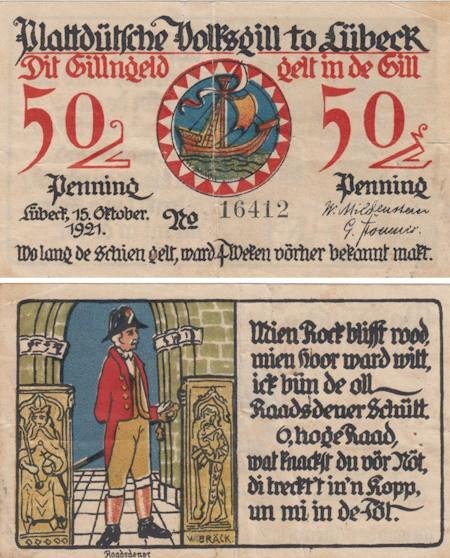 Plattdütsche Volksgill to Lübeck
Dit Gillngeld gelt in de Gill
50 50
Penning Penning
Lübeck, 15. Oktober. 1921.
No 16412
W. Mildenstein
Wo lang de Schien gelt, ward 4 Weken vörher bekannt makt.
Mien Rock blifft rood,
mien Hoor ward witt,
ick bün de oll
Raadsdener Schütt.
O, hoge Raad,
wat knackst du vör Nöt,
di treckt't in'n Kopp,
un mi in de Föt.
W BRÄCK.
Raadsdener